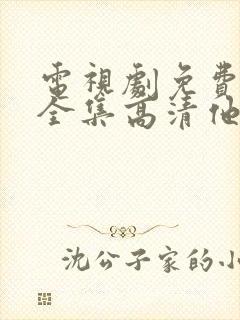 電視劇免費
全集高清他
沈公子家的小